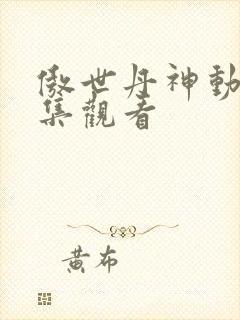 傲世丹神動
集觀看
黃布